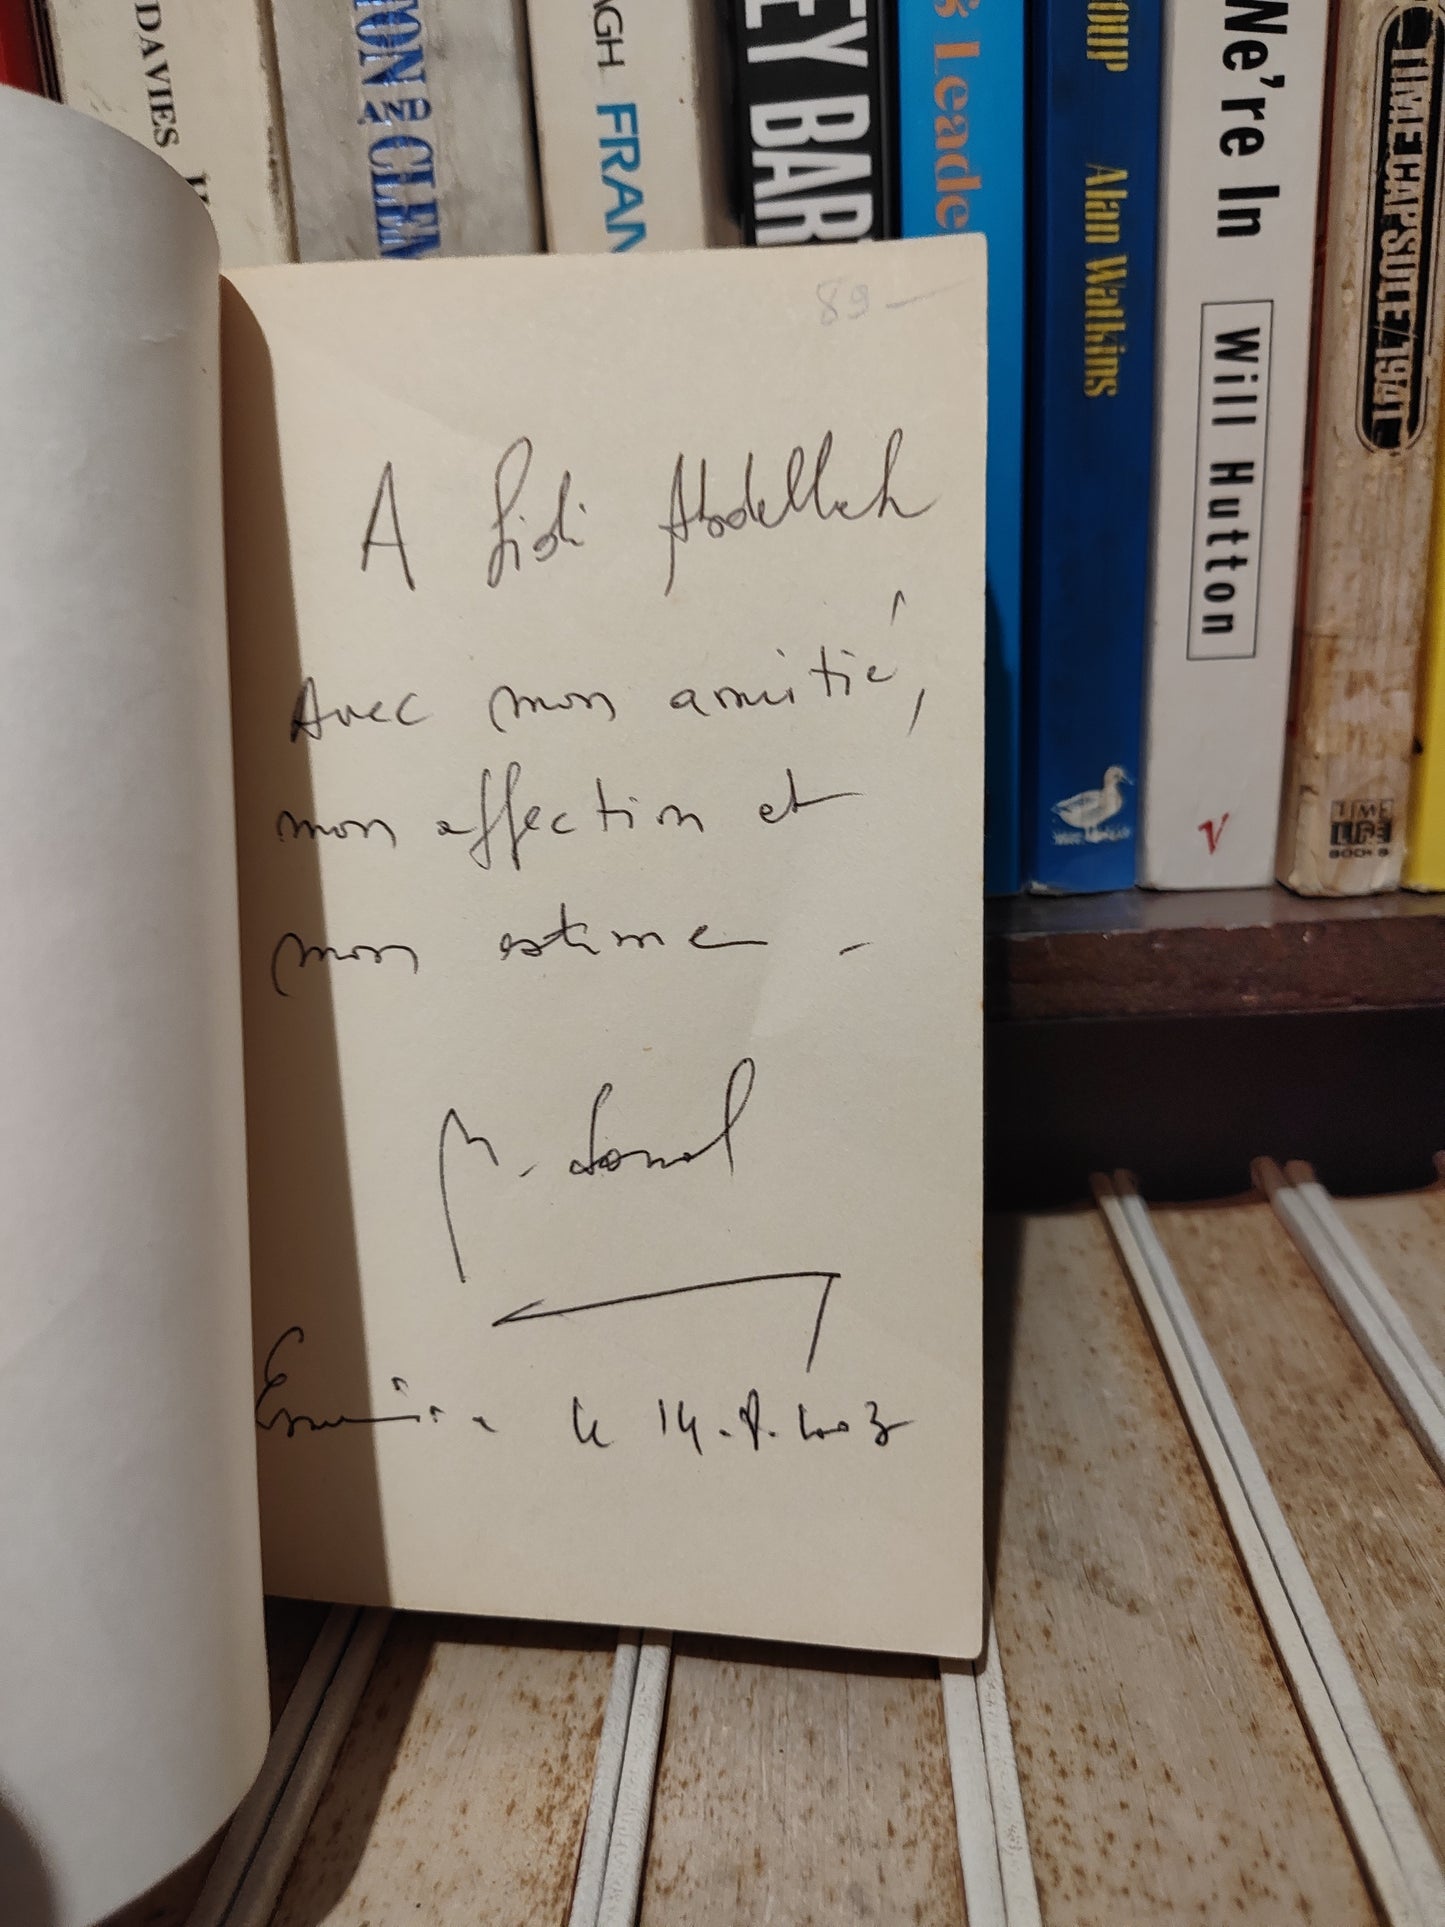 DAVIES
ION
CLEM
AGH FRAN
EY BAR
Leade
OUP Alan Watkins
We're In Will Hutton
V
TIME CAPSULE/1941
LIFE
89
A Sidi Abdellah
Avec mon amitié,
mon affection et
mon estime -
le 14.8.2003